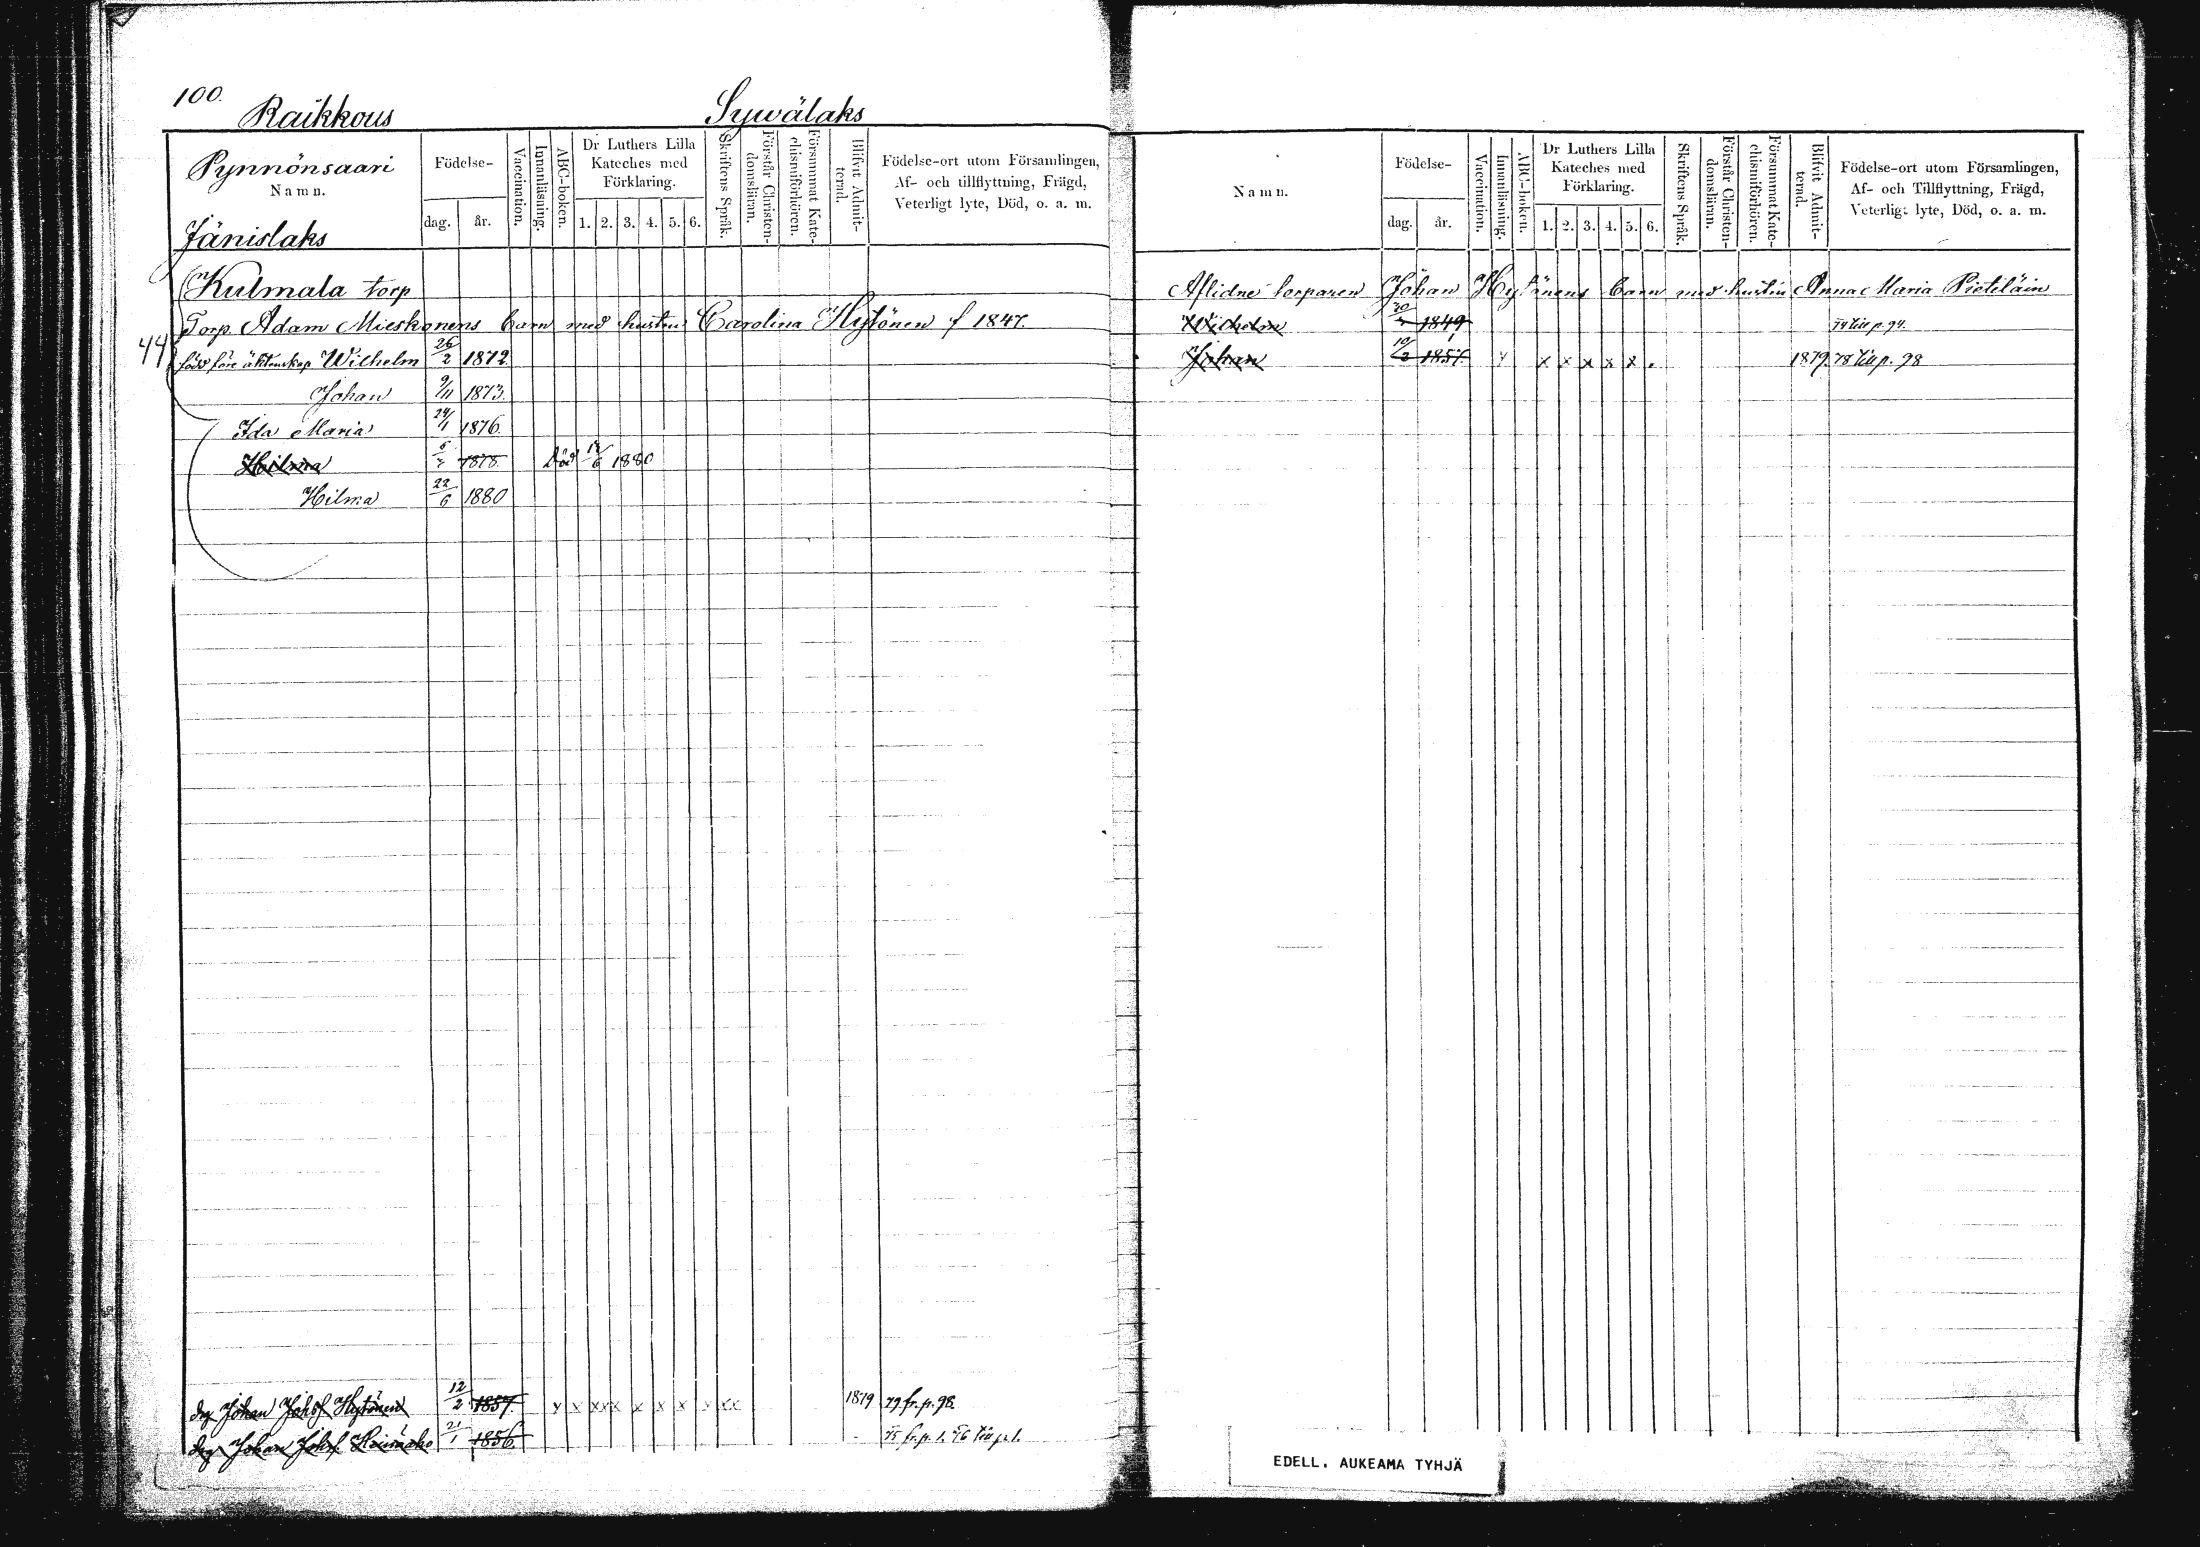 100.
Raikkous Sywälaks
Pynnönsaari
Namn.
Jänislaks
Födelse-
dag. år.
Vaccination.
Innanläsning.
ABC-boken.
Dr Luthers Lilla
Kateches med
Förklaring.
1. 2. 3. 4. 5. 6.
Skriftens Språk.
Förstår Christen-
domsläran.
Försummat Kate-
chismiförhören.
Blifvit Admit-
terad.
Födelse-ort utom Församlingen,
Af- och tillflyttning, Frägd,
Veterligt lyte, Död, o. a. m.
Kulmala torp
Torp. Adam Mieskonens barn med hustru Carolina Hytönen f 1847.
44
född före äktenskap Wilhelm 26/2 1872.
Johan 9/11 1873.
Ida Maria 24/1 1876.
Hilma 1878. Död 6 1880
Hilma 22/6 1880
drg Johan Johsf Hytönen 12/2 1857. x x x x x x x x x x x 1879 79 fr. p. 98.
drg Johan Johsf 21/1 1856. 75 fr. p. 1. 76 till p. 1.
Namn.
Födelse-
dag. år.
Vaccination.
Innanläsning.
ABC-boken.
Dr Luthers Lilla
Kateches med
Förklaring.
1. 2. 3. 4. 5. 6.
Skriftens Språk.
Förstår Christen-
domsläran.
Försummat Kate-
chismiförhören.
Blifvit Admit-
terad.
Födelse-ort utom Församlingen,
Af- och Tillflyttning, Frägd,
Veterligt lyte, Död, o. a. m.
Aflidne torparen Johan Hytönens barn med hustrun Anna Maria Pietiläin
Wilhelm 1849 74 till p. 94.
Johan 10/2 1857. x x x x x 1879. 78 till p. 98
EDELL. AUKEAMA TYHJÄ